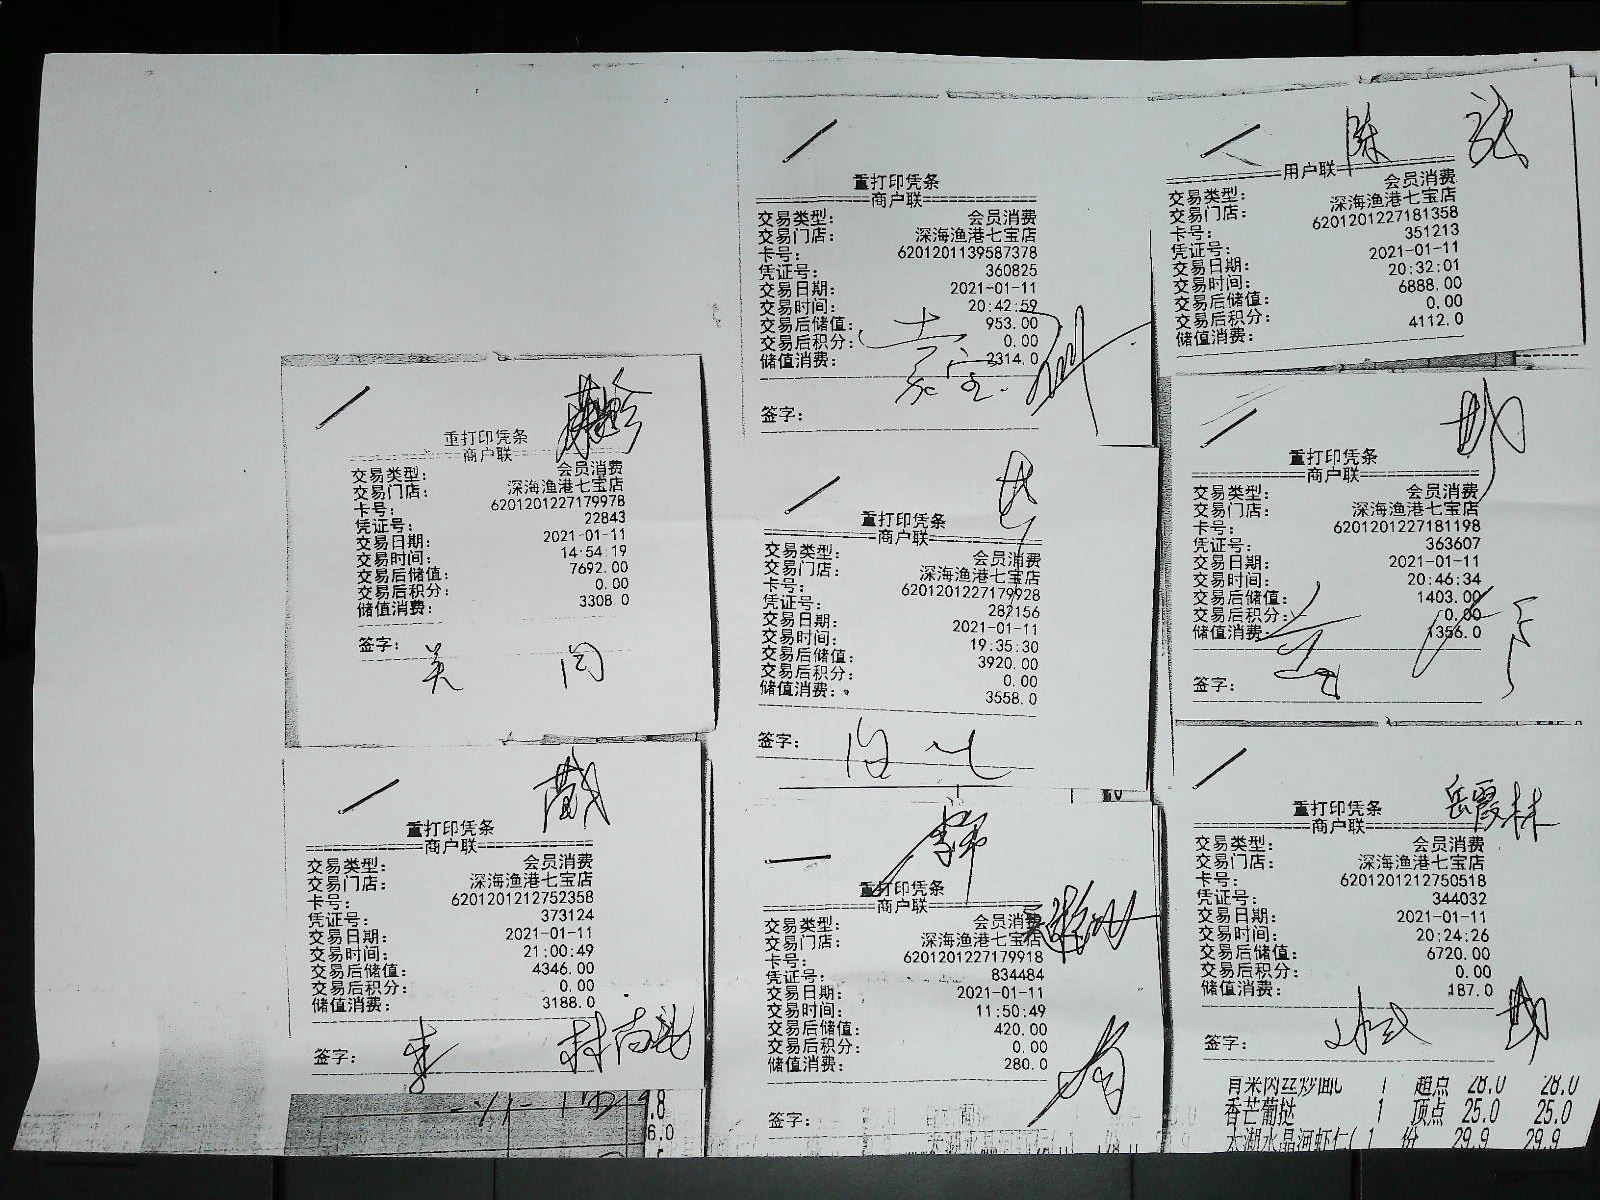 重打印凭条
商户联
交易类型: 会员消费
交易门店: 深海渔港七宝店
卡号: 6201201139587378
凭证号: 360825
交易日期: 2021-01-11
交易时间: 20:42:59
交易后储值: 953.00
交易后积分: 0.00
储值消费: 2314.0
签字:
陈
用户联
交易类型: 会员消费
交易门店: 深海渔港七宝店
卡号: 6201201227181358
凭证号: 351213
交易日期: 2021-01-11
交易时间: 20:32:01
交易后储值: 6888.00
交易后积分: 0.00
储值消费: 4112.0
重打印凭条
商户联
交易类型: 会员消费
交易门店: 深海渔港七宝店
卡号: 6201201227179978
凭证号: 22843
交易日期: 2021-01-11
交易时间: 14:54:19
交易后储值: 7692.00
交易后积分: 0.00
储值消费: 3308.0
签字:
重打印凭条
商户联
交易类型: 会员消费
交易门店: 深海渔港七宝店
卡号: 6201201227179928
凭证号: 282156
交易日期: 2021-01-11
交易时间: 19:35:30
交易后储值: 3920.00
交易后积分: 0.00
储值消费: 3558.0
签字:
重打印凭条
商户联
交易类型: 会员消费
交易门店: 深海渔港七宝店
卡号: 6201201227181198
凭证号: 363607
交易日期: 2021-01-11
交易时间: 20:46:34
交易后储值: 1403.00
交易后积分: 0.00
储值消费: 1356.0
签字:
重打印凭条
商户联
交易类型: 会员消费
交易门店: 深海渔港七宝店
卡号: 6201201212752358
凭证号: 373124
交易日期: 2021-01-11
交易时间: 21:00:49
交易后储值: 4346.00
交易后积分: 0.00
储值消费: 3188.0
签字: 李
重打印凭条
商户联
交易类型: 会员消费
交易门店: 深海渔港七宝店
卡号: 6201201227179918
凭证号: 834484
交易日期: 2021-01-11
交易时间: 11:50:49
交易后储值: 420.00
交易后积分: 0.00
储值消费: 280.0
签字:
岳霞林
重打印凭条
商户联
交易类型: 会员消费
交易门店: 深海渔港七宝店
卡号: 6201201212750518
凭证号: 344032
交易日期: 2021-01-11
交易时间: 20:24:26
交易后储值: 6720.00
交易后积分: 0.00
储值消费: 187.0
签字:
青菜肉丝炒面 1 超点 28.0 28.0
香芒葡挞 1 顶点 25.0 25.0
太湖水晶河虾仁( 1 份 29.9 29.9